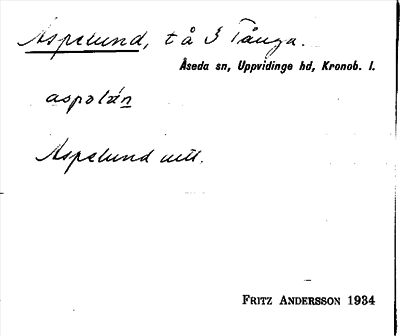 Aspelund, t å 3 Tånga.
Åseda sn, Uppvidinge hd, Kronob. l.
aspolán
Aspelund uttl.
FRITZ ANDERSSON 1934